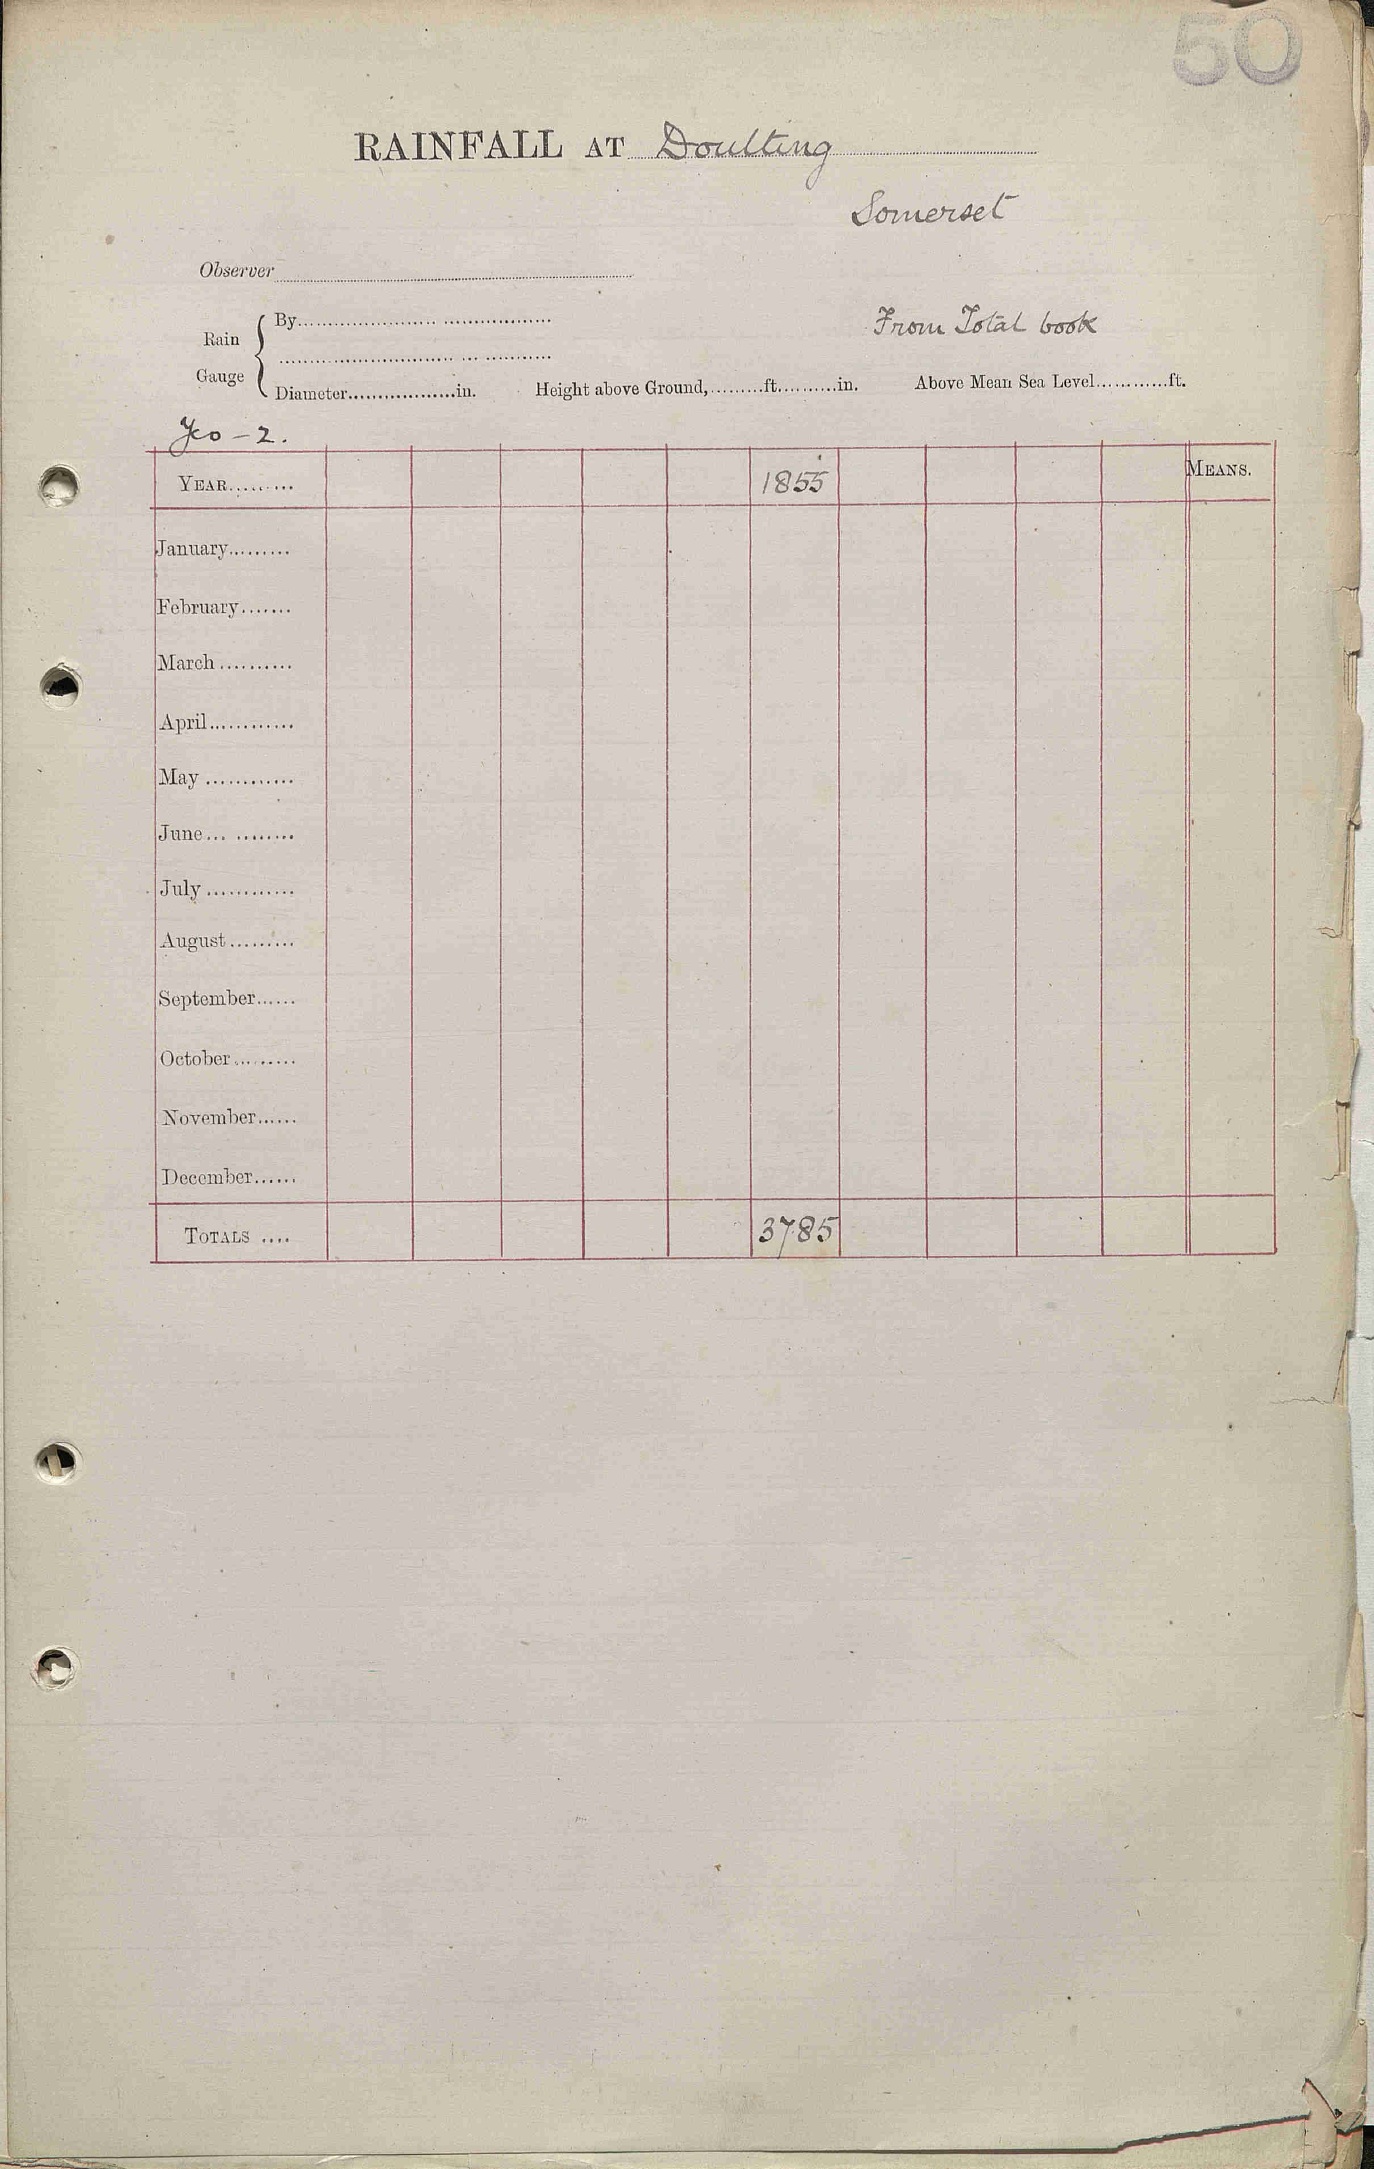 50
RAINFALL AT Doulting
Somerset
Observer
By
Rain
Gauge
From Total book
Diameter..................in. Height above Ground,.........ft..........in. Above Mean Sea Level............ft.
Yeo - 2.
YEAR......... 1855 MEANS.
January.........
February.......
March..........
April............
May............
June... ........
July............
August.........
September......
October.........
November......
December......
TOTALS .... 37.85